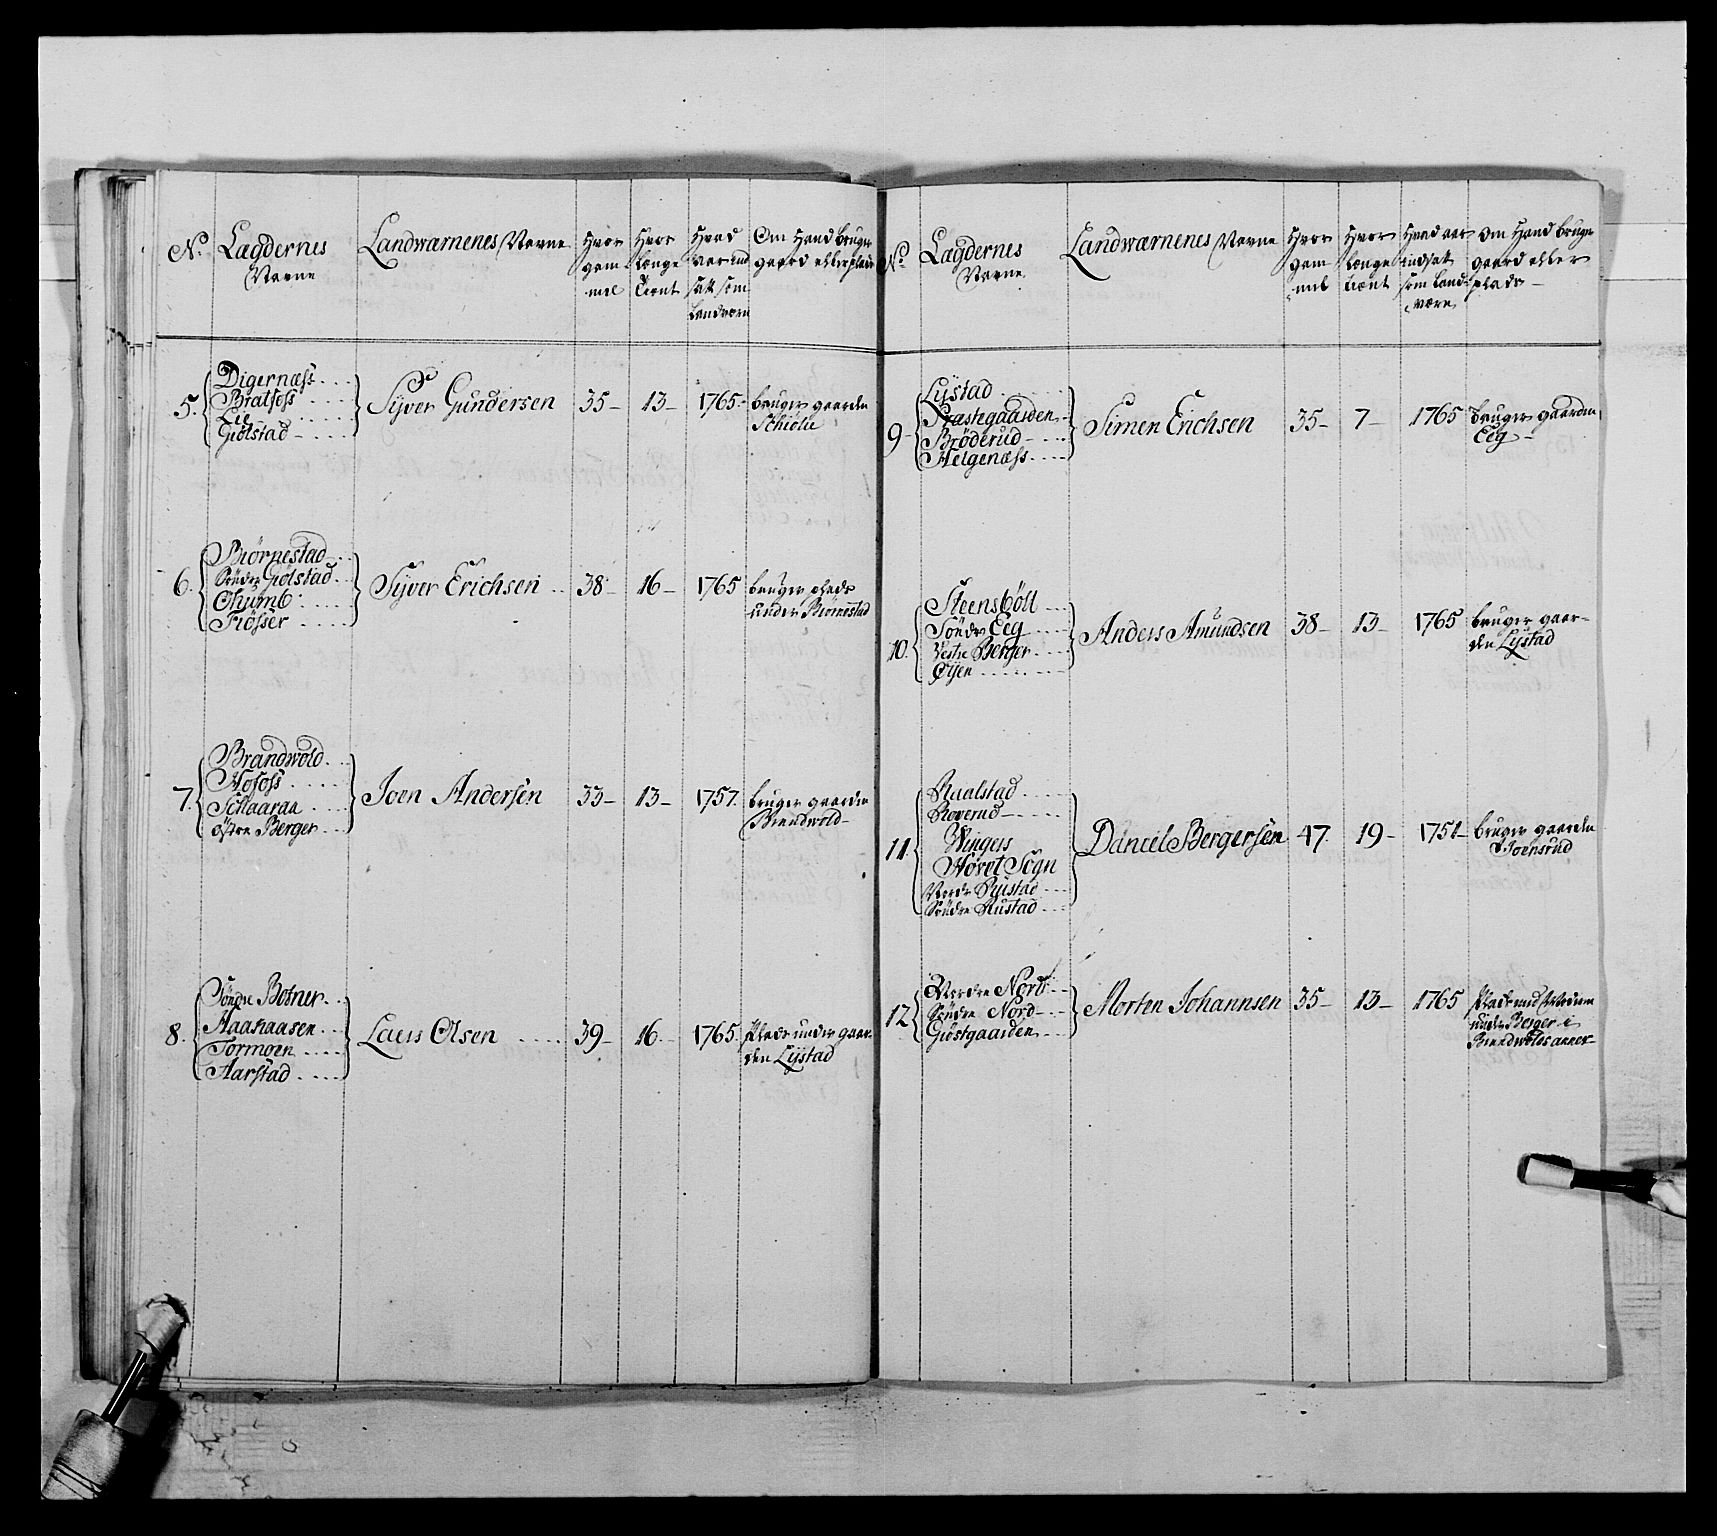 No. Lagdernes Navne Landværnenes Navne Hvor gam mel Hvor længe tient Hvad var ind satt som Landværn Om Hand bruger gaard eller plads
5. Digernæss
Bratfoss
Lie
Giølstad
Syver Gundersen 35 13 1765 bruger gaarden
Schiølie
6. Biørnestad
Søndre Giølstad
Thumb
Fiøsser
Syver Erichsen 38 16 1765 bruger plads
under Biørnestad
7. Brandwold
Nofoss
Schaaraa
østre Berger
Joen Andersen 33 13 1757 bruger gaarden
Brandwold
8. Søndre Botner
Aaahaasen
Tormoen
Aarstad
Lars Olsen 39 16 1765 Plads under gaar-
den Lystad
No. Lagdernes Navne Landværnenes Navne Hvor gam mel Hvor længe tient Hvad aar indsat som Land være Om Hand bruger gaard eller plads
9 Lystad
Præstegaarden
Brøderud
Helgenæss
Simen Erichsen 35 7 1765 bruger gaarden
Eeg
10. Steensbøll
Søndre Eeg
Vestre Berger
Øyen
Anders Amundsen 38 13 1765 bruger gaar-
den Lystad
11. Raalstad
Roverud
Wingers
Hovet Sogn
Nordre Rustad
Søndre Rustad
Daniel Bergersen 47 19 1751 bruger gaarden
Joensrud
12 Nordre Nord
Søndre Nord
Giøstgaarden
Morten Johannsen 35 13 1765 Plads
under Berger i
Brandwolds annex